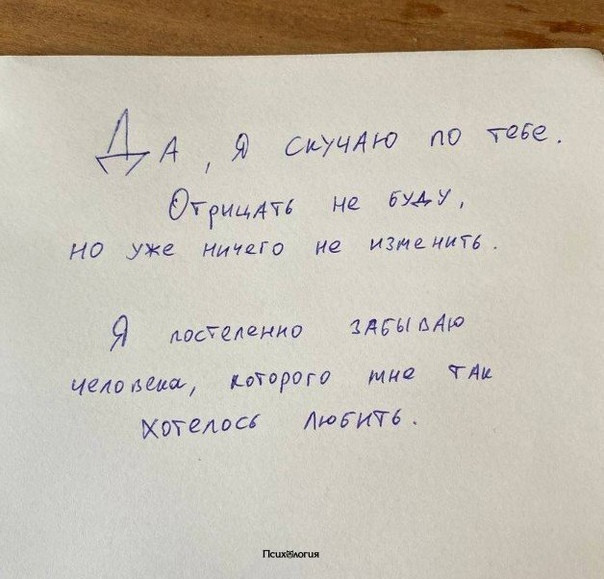 Да, я скучаю по тебе.
Отрицать не буду,
но уже ничего не изменить.
Я постепенно забываю
человека, которого мне так
хотелось любить.
Психология